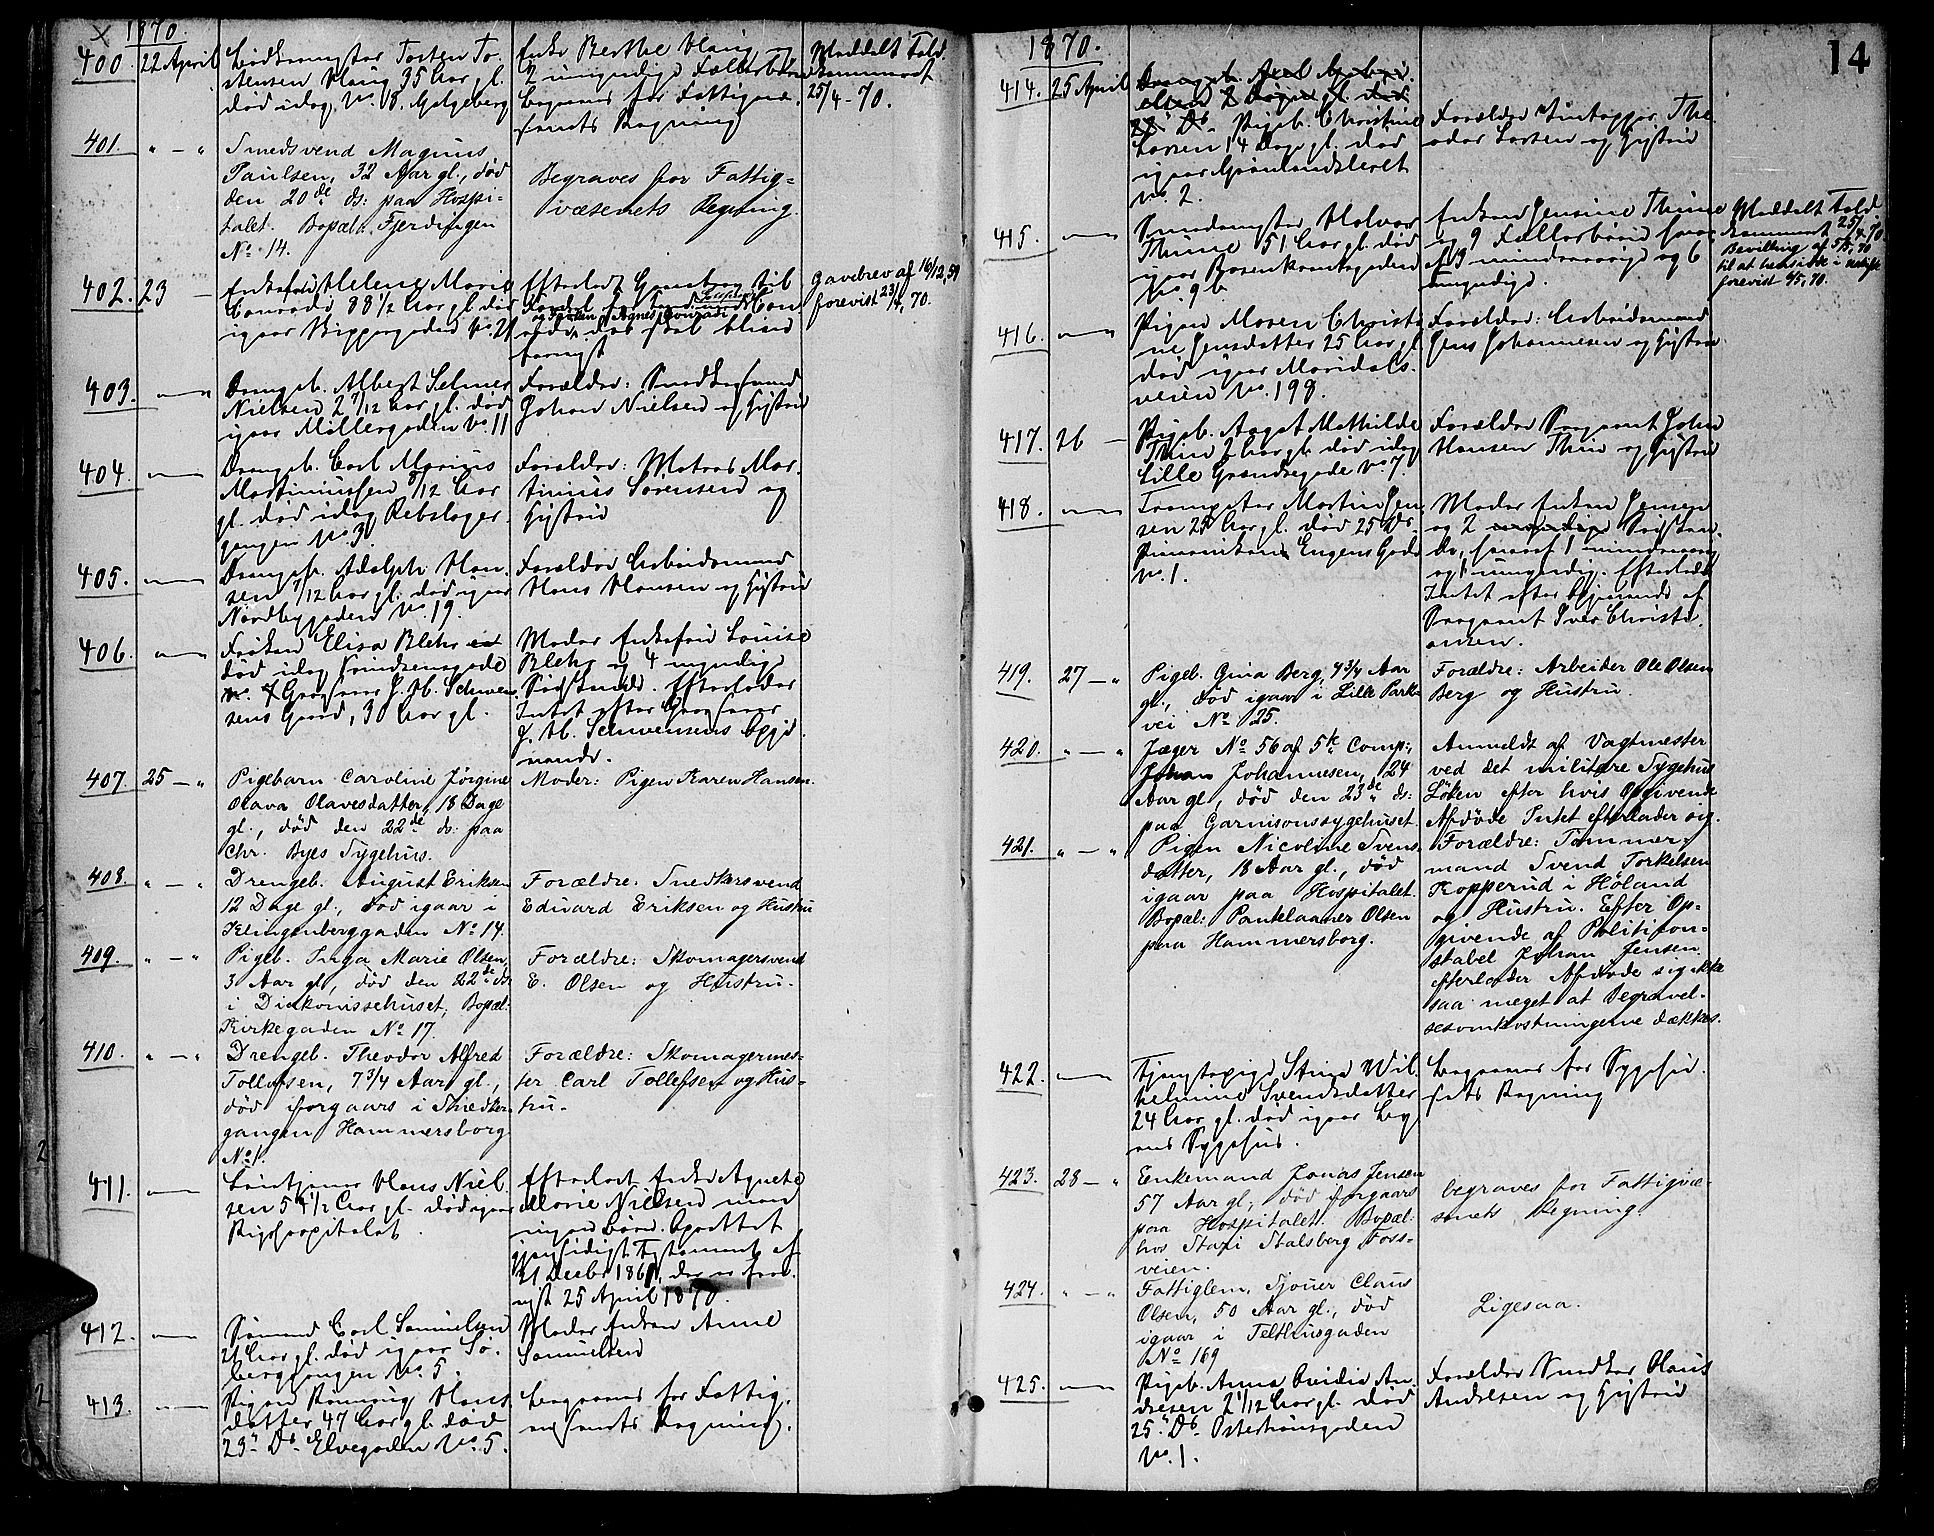 1870.
400. 22 April
Torsten To-
stensen Haug 35 Aar gl.
død idag, No. 8. Galgeberg
Enke Berthe Haug og
2 umyndige Fællesbørn
Begraves for Fattigvæ-
senets Regning
Meddelt Told-
kammeret
25/4-70.
401. " - "
Smedsvend Magnus
Paulsen, 32 Aar gl., død
den 20de ds: paa Hospi-
talet. Bopæl: Fjerdingen
No 14.
Begraves for Fattig-
væsenets Regning.
402. 23 -
Enkefru Helene Marie
Conradi 88 1/2 Aar gl. død
igaar No. 21
Efterladt Gavebrev til
og Frøken Agnes Conradi
Gavebrev af 16/12, 59
forevist 23/4, 70.
403. " - "
Drengeb. Albert Selmer
Nielsen 2 7/12 Aar gl. død
igaar Møllergaden No. 11
Forældre: Snedkersvend
Johan Nielsen og Hustru
404. " - "
Drengeb. Carl Marius
Martiniussen 8/12 Aar
gl. død idag Rebslager-
gangen No. 3
Forældre: Matros Mar-
tinius Sørensen og
Hustru
405. " - "
Drengeb. Adolph Han-
sen /12 Aar gl. død igaar
Nordbygaden No. 19.
Forældre Arbeidsmand
Hans Hansen og Hustru
406. " - "
Frøken Elisa Blehr
død idag Prindsensgade
No. 7 J. H. Schwen-
sens Gaard, 30 Aar gl.
Moder Enkefru Louise
Blehr og 4 myndige
Sødskende. Efterlader
Intet efter
J. H. Schwensens Opgi-
vende.
407. 25 - "
Pigebarn Caroline Jørgine
Olava Olavesdatter, 18 Dage
gl., død den 22de ds: paa
Chr. Byes Sygehus.
Moder: Pigen Karen Hansen.
408. " - "
Drengeb. August Eriksen
12 Dage gl., død igaar i
Klingenberggaden No 14.
Forældre: Snedkersvend
Edvard Eriksen og Hustru
409. " - "
Pigeb. Inga Marie Olsen,
3 Aar gl, død den 22de ds:
i Diakonissehuset, Bopæl:
Kirkegaden No 17.
Forældre: Skomagersvend
E. Olsen og Hustru.
410. " - "
Drengeb. Theodor Alfred
Tollefsen, 7 3/4 Aar gl.,
død iforgaars i Snedker-
gangen Hammersborg
No 1.
Forældre: Skomagermes-
ter Carl Tollefsen og Hus-
tru.
411. " - "
Hans Niel-
sen 54 1/2 Aar gl. død igaar
Rigshospitalet.
Efterladt Enke Agnete
Marie Nielsen men
ingen Børn. Oprettet
gjensidigt Testament af
21 Decbr 1861, der er fore-
vist 25 April 1870.
412. " - "
Sømand Carl Samuelsen
21 Aar gl. død igaar Sø-
berggangen No. 5.
Moder Enken Anne
Samuelsen
413. " - "
Pigen Hans-
datter 47 Aar gl. død
23de Ds. Elvegaden No. 5.
Begraves for Fattig-
væsenets Regning.
14
1870.
414. 25 April
Pigeb. Christine
Larsen 14 Dage gl. død
igaar Grønlandsleret
No. 2.
Forældre The-
odor Larsen og Hustru
415. " - "
Halvor
Thune 51 Aar gl. død
igaar Rosenkrantzgaden
No. 9b.
Enken Jensine Thune
og 9 Fællesbørn hvor-
af 3 mindreaarige og 6
umyndige.
Meddelt Told-
kammeret 25/4-70
Bevilling af 5/5, 70
til at hensidde i uskiftet
forevist 6/5, 70.
416. " - "
Pigen Maren Christi-
ne Jensdatter 25 Aar gl.
død igaar Maridals-
veien No. 198.
Forældre: Arbeidsmand
Jens Johannesen og Hustru
417. 26 -
Pigeb. Aagot Mathilde
Thin 2 Aar gl. død idag
Lille Grændsegade No 7.
Forældre Sergeant John
Hansen Thin og Hustru
418. " - "
Trompeter Martin Jen-
sen 25 Aar gl. død 25 Ds.
Eugens Gade
No. 1.
Moder Enken Jensen
og 2 Sødsken-
de, hvoraf 1 mindreaarig
og 1 umyndig. Efterlader
Intet efter Opgivende af
Sergeant Iver Christi-
ansen.
419. 27 - "
Pigeb. Gina Berg, 4 3/4 Aar
gl., død igaar i Lille Park-
vei No 25.
Forældre: Arbeider Ole Olsen
Berg og Hustru.
420. " - "
Jæger No 56 af 5te Comp:,
Johan Johannesen, 24
Aar gl, død den 23de ds:
paa Garnisonssygehuset.
Anmeldt af Vagtmester
ved det militære Sygehus
Løken efter hvis Opgivende
Afdøde Intet efterlader sig.
421. " - "
Pigen Nicoline Svens-
datter, 18 Aar gl., død
igaar paa Hospitalet.
Bopæl: Pantelaaner Olsen
paa Hammersborg.
Forældre: Tømmer-
mand Svend Torkelsen
Kopperud i Høland
og Hustru. Efter Op-
givende af Politikon-
stabel Johan Jensen
efterlader Afdøde sig ikke
saa meget at Begravel-
sesomkostningerne dækkes.
422. " - "
Tjenestepige Stine Wil-
helmine Svendsdatter
24 Aar gl. død igaar By-
ens Sygehus.
Begraves for Sygehu-
sets Regning
423. 28 - "
Enkemand Jonas Jensen
57 Aar gl, død iforgaars
paa Hospitalet. Bopæl:
hos Staxi Stalsberg Foss-
veien.
begraves for Fattigvæ-
senets Regning.
424. " - "
Fattiglem, Sjouer Claus
Olsen, 50 Aar gl., død
igaar i Telthusgaden
No 169
Ligesaa.
425. " - "
Pigeb. Anna Ovidia An-
dresen 2 1/12 Aar gl. død
25 Ds. Østerhausgaden
No. 1.
Forældre Snedker Hans
Andresen og Hustru